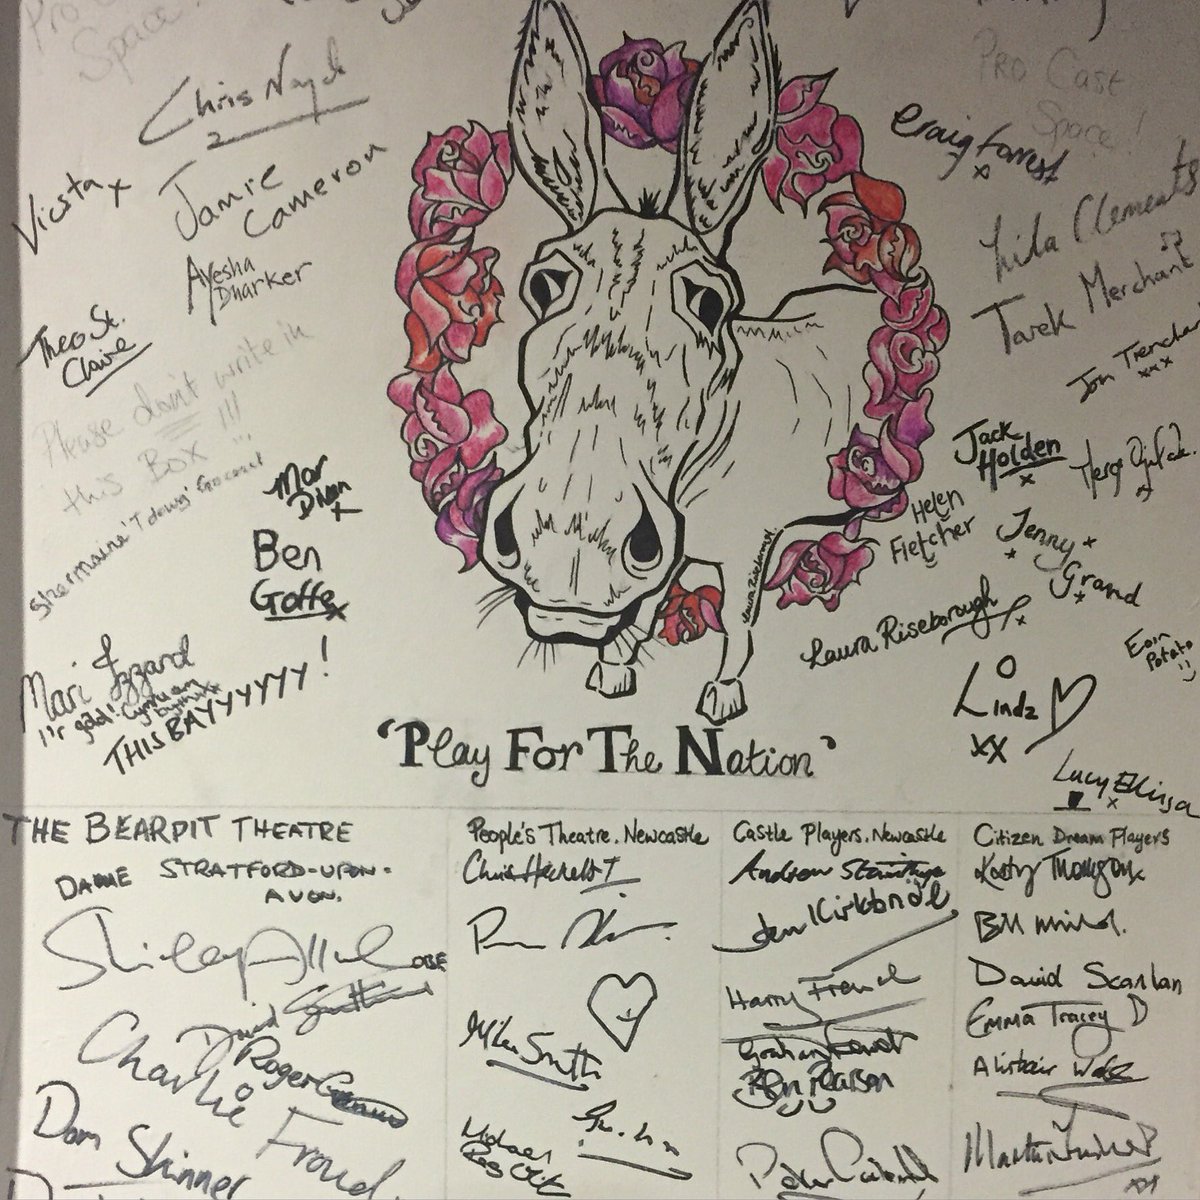 Space!
Chris Nayak
Jamie
Cameron
Vicsta x
Ayesha
Dharker
Theo St.
Claire
Please don't write in
this Box !!!
Mar
Dixon
x
Ben
Goffe x
Mari Izzard
I'r gâd!
THIS BAYYYYYYY!
PRO Cast
Space!
Craig Forrest
x
Lila Clements
Tarek Merchant
Jon Trenchard
xxx
Jack
Holden
x
Helen
Fletcher
Jenny
Grand
x
Laura Riseborough
x
Eoin
Potato
Lindz
xx
Lucy Ellinson
x
'Play For The Nation'
THE BEARPIT THEATRE
DAME STRATFORD-UPON-
AVON.
Shirley Allen OBE
David
Roger
Charlie Froud
Dom Skinner
People's Theatre. Newcastle
Chris Heckels
Mike Smith
Michael
Castle Players. Newcastle
Andrew Stainthorpe
Jen Kirkbride
Harry French
Graham
Ben Pearson
Peter
Citizen Dream Players
Katy Thomson x
Bill
David Scanlan
Emma Tracey
Alistair
Martin Turner